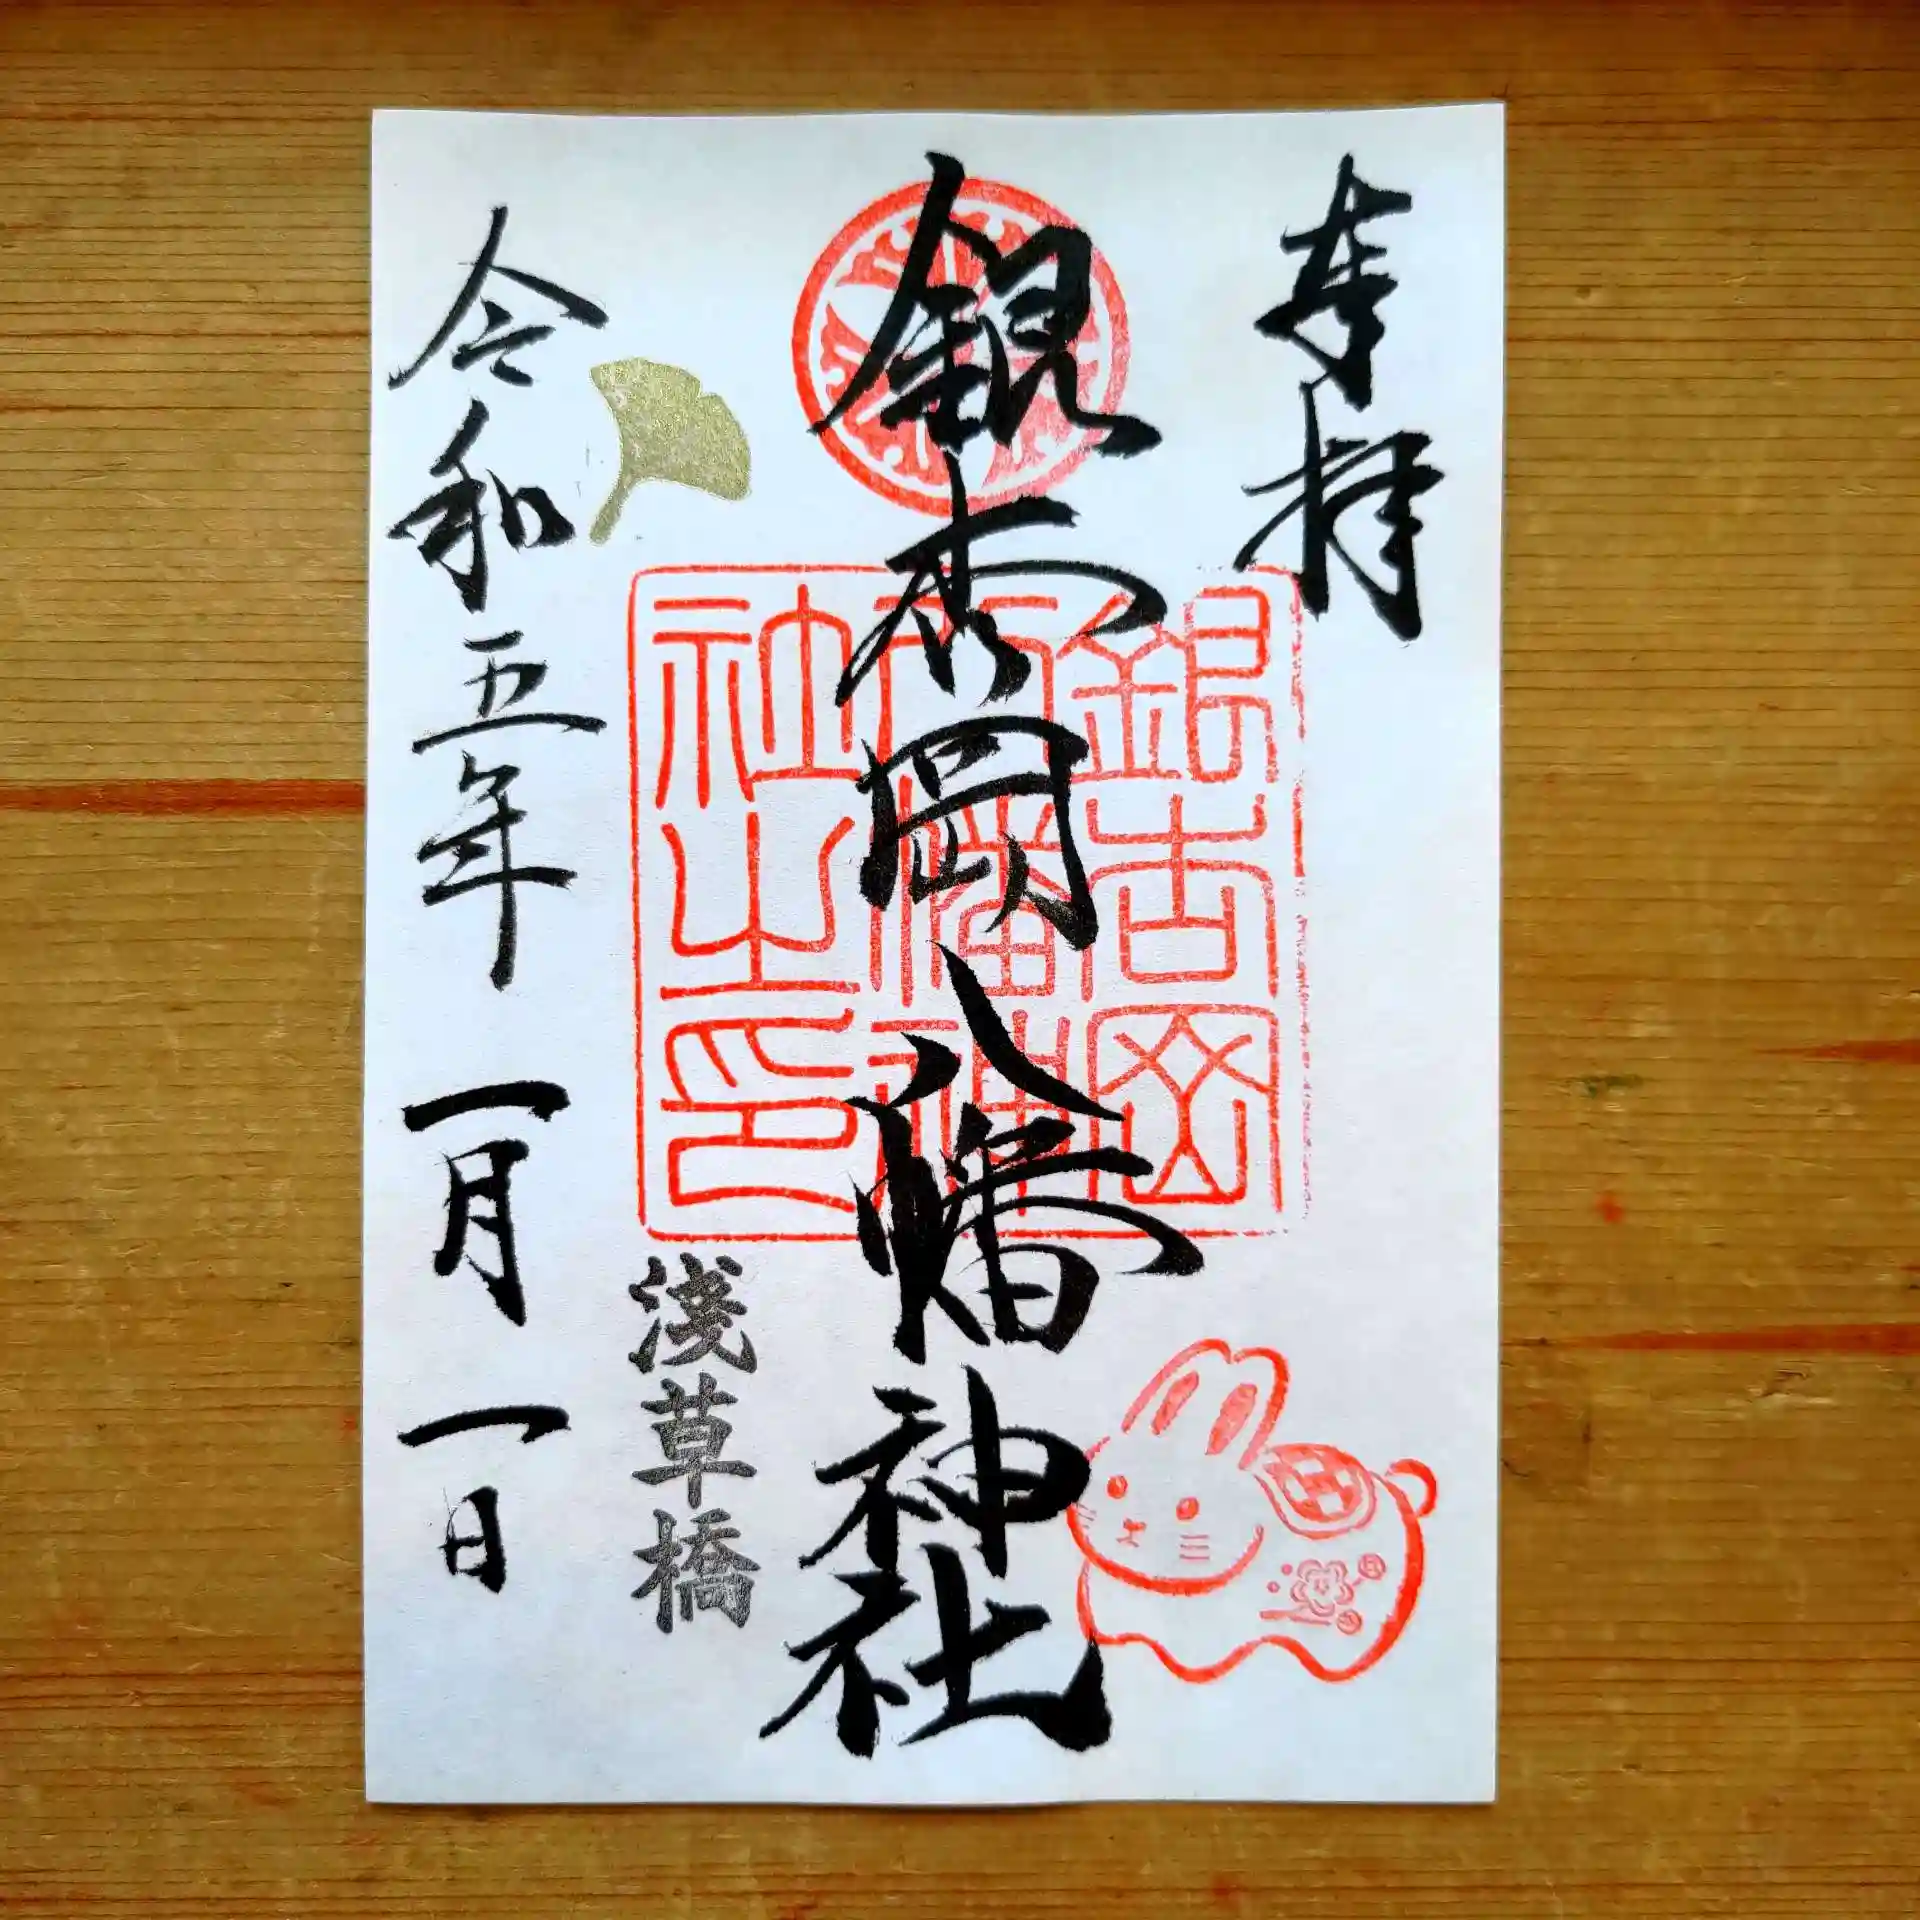 奉拝
銀杏岡八幡神社
銀杏岡
八幡神
社之印
淺草橋
令和五年 一月 一日